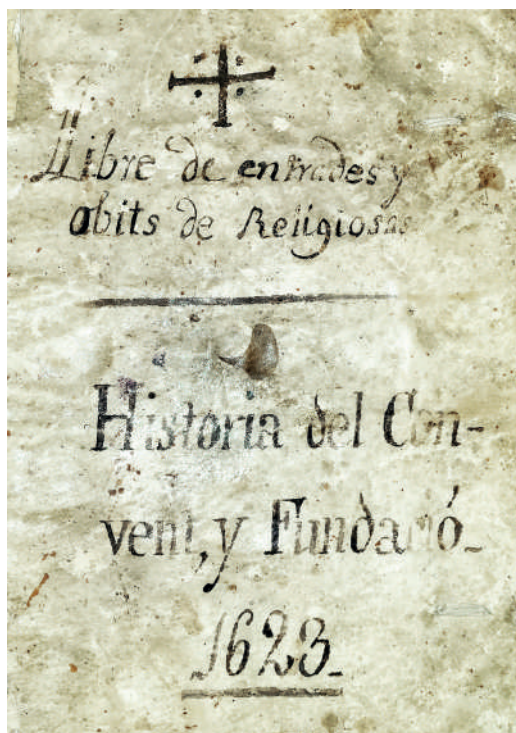 Llibre de entrades y
obits de Religiosas
Historia del Con-
vent, y Fundació.
1623.